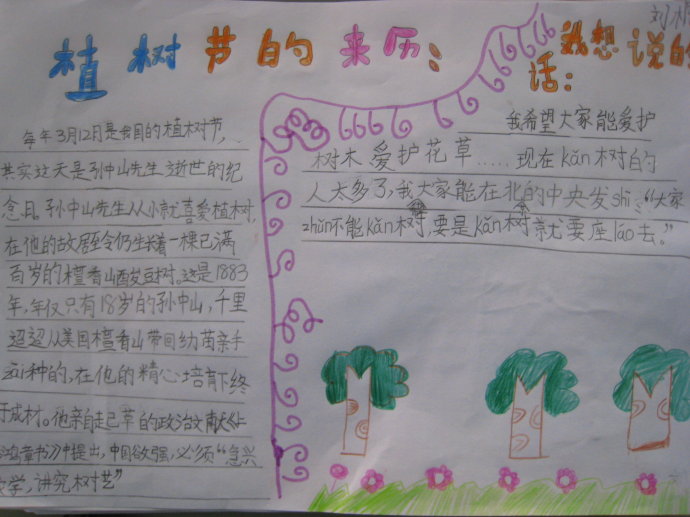 植树节的来历：
每年3月12日是我国的植树节，
其实这天是孙中山先生逝世的纪
念日。孙中山先生从小就喜爱植树，
在他的故居至今仍生长着一棵已满
百岁的檀香山酸豆树。这是1883
年，年仅只有18岁的孙中山，千里
迢迢从美国檀香山带回幼苗亲手
种的，在他的精心培育下终
于成材。他亲自起草的政治文献《上
鸿章书》中提出，中国欲强，必须“急兴
农学，讲究树艺”
刘
我想说的
话：
我希望大家能爱护
树木爱护花草……现在kǎn树的
人太多了，我大家能在北的中央发shì：“大家
zhǔn不能kǎn树，要是kǎn树就要座láo去。”